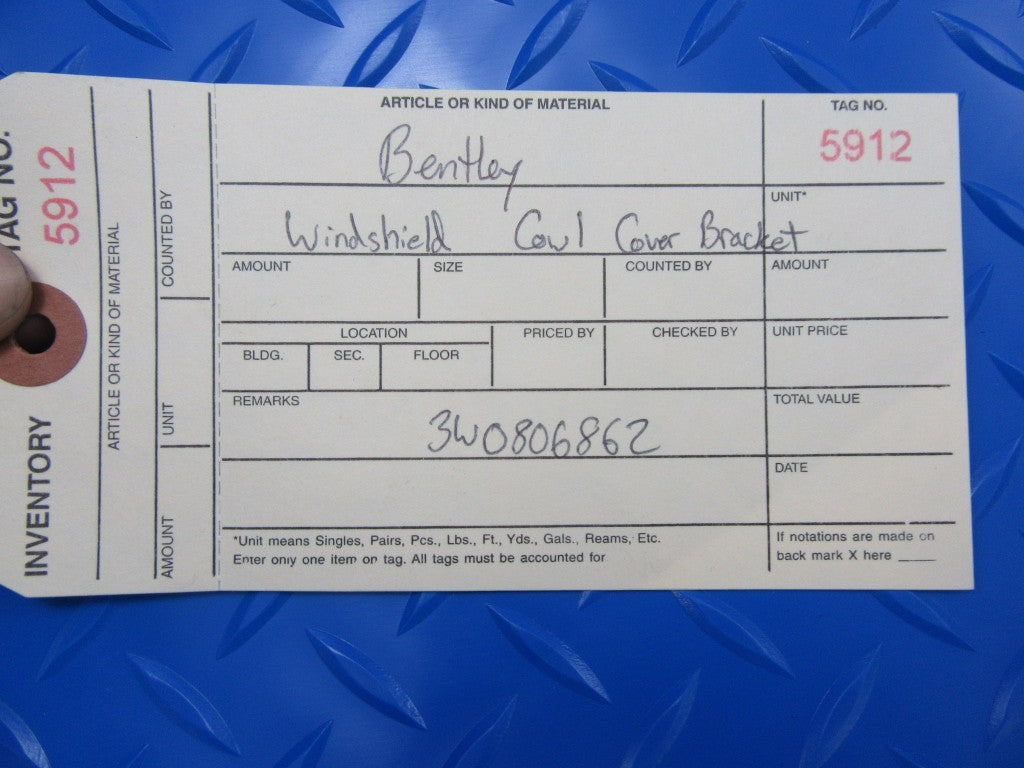 TAG NO.
5912
INVENTORY
ARTICLE OR KIND OF MATERIAL
COUNTED BY
UNIT
AMOUNT
ARTICLE OR KIND OF MATERIAL
Bentley
TAG NO.
5912
Windshield Cowl Cover Bracket
UNIT*
AMOUNT SIZE COUNTED BY AMOUNT
LOCATION PRICED BY CHECKED BY UNIT PRICE
BLDG. SEC. FLOOR
REMARKS TOTAL VALUE
3W0806862
DATE
*Unit means Singles, Pairs, Pcs., Lbs., Ft., Yds., Gals., Reams, Etc.
Enter only one item on tag. All tags must be accounted for
If notations are made on
back mark X here ____